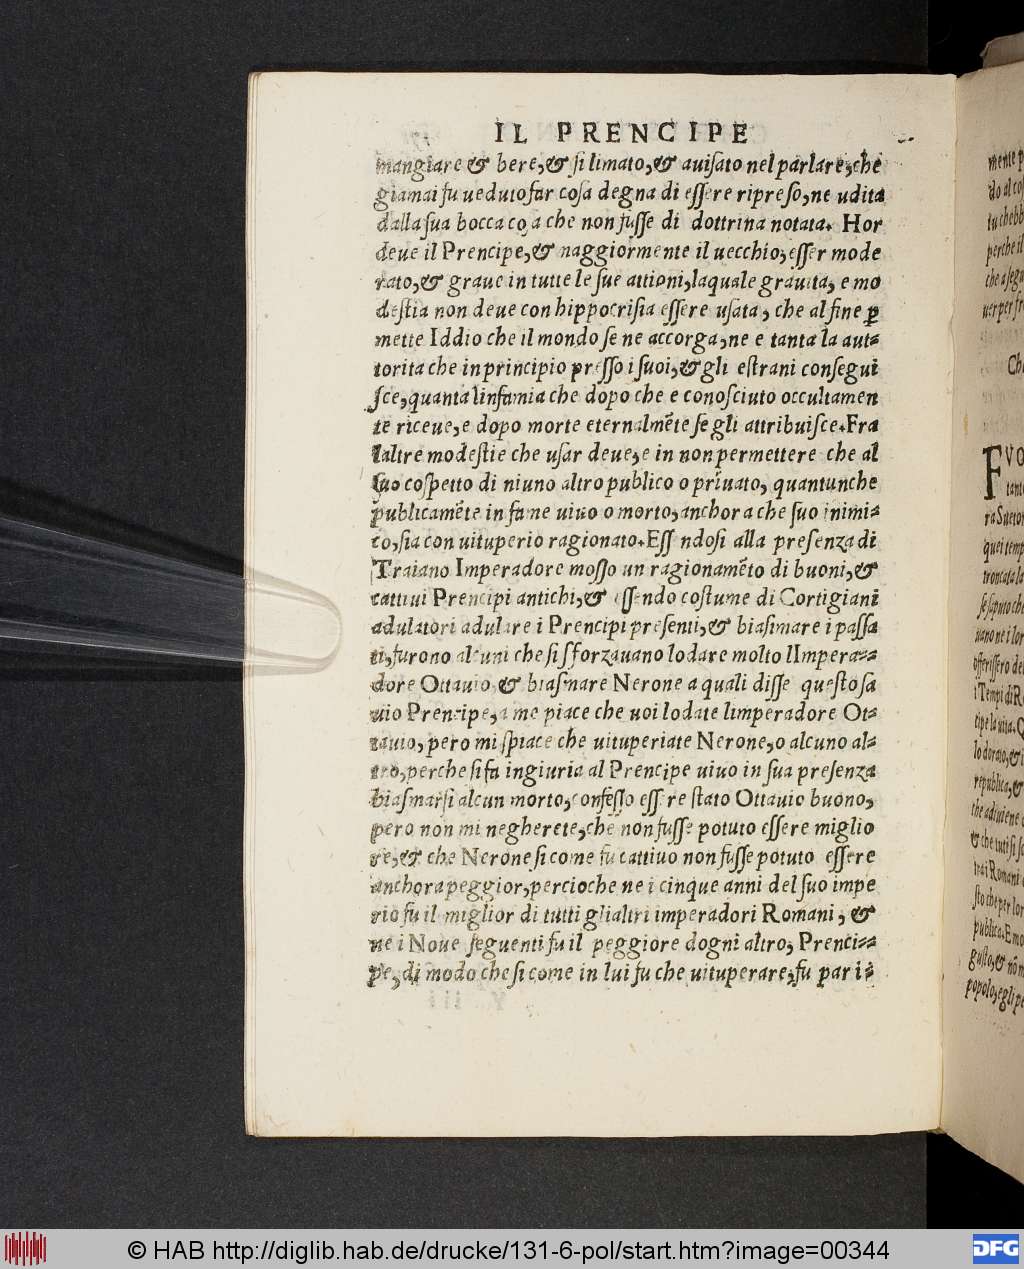 IL PRENCIPE
mangiare & bere,& ſi limato,& auiſato nel parlare,che
giamai fu ueduto far coſa degna di eſſere ripreſo,ne udita
dalla ſua bocca coſa che non fuſſe di dottrina notata. Hor
deue il Prencipe,& naggiormente il uecchio,eſſer mode
rato,& graue in tutte le ſue attioni,laquale grauita, e mo
deſtia non deue con hippocriſia eſſere uſata, che al fine ꝑ
mette Iddio che il mondo ſe ne accorga,ne e tanta la aut⸗
torita che in principio preſſo i ſuoi,& gli eſtrani conſegui
ſce,quanta linfamia che dopo che e conoſciuto occultamen
te riceue,e dopo morte eternalmẽte ſe gli attribuiſce.Fra
laltre modeſtie che uſar deue,e in non permettere che al
ſuo coſpetto di niuno altro publico o priuato, quantunche
publicamẽte infame uiuo o morto,anchora che ſuo inimi⸗
co,ſia con uituperio ragionato.Eſſ ndoſi alla preſenza di
Traiano Imperadore moſſo un ragionamẽto di buoni,&
cattiui Prencipi antichi,& eſſendo coſtume di Cortigiani
adulatori adulare i Prencipi preſenti,& biaſimare i paſſa
ti,furono alcuni che ſi ſforzauano lodare molto lImpera⸗
dore Ottauio,& biaſmare Nerone a quali diſſe queſto ſa
uio Prencipe,a me piace che uoi lodate limperadore Ot⸗
tauio, pero mi ſpiace che uituperiate Nerone,o alcuno al⸗
tro,perche ſi fa ingiuria al Prencipe uiuo in ſua preſenza
biaſmarſi alcun morto,confeſſo eſſere ſtato Ottauio buono,
pero non mi negherete,che non fuſſe potuto eſſere miglio
re,& che Nerone ſi come fu cattiuo non fuſſe potuto eſſere
anchora peggior,percioche ne i cinque anni del ſuo impe
rio fu il miglior di tutti glialtri imperadori Romani, &
ne i Noue ſeguenti fu il peggiore dogni altro, Prenci⸗
pe,di modo che ſi come in lui fu che uituperare,fu par i⸗
© HAB http://diglib.hab.de/drucke/131-6-pol/start.htm?image=00344
DFG